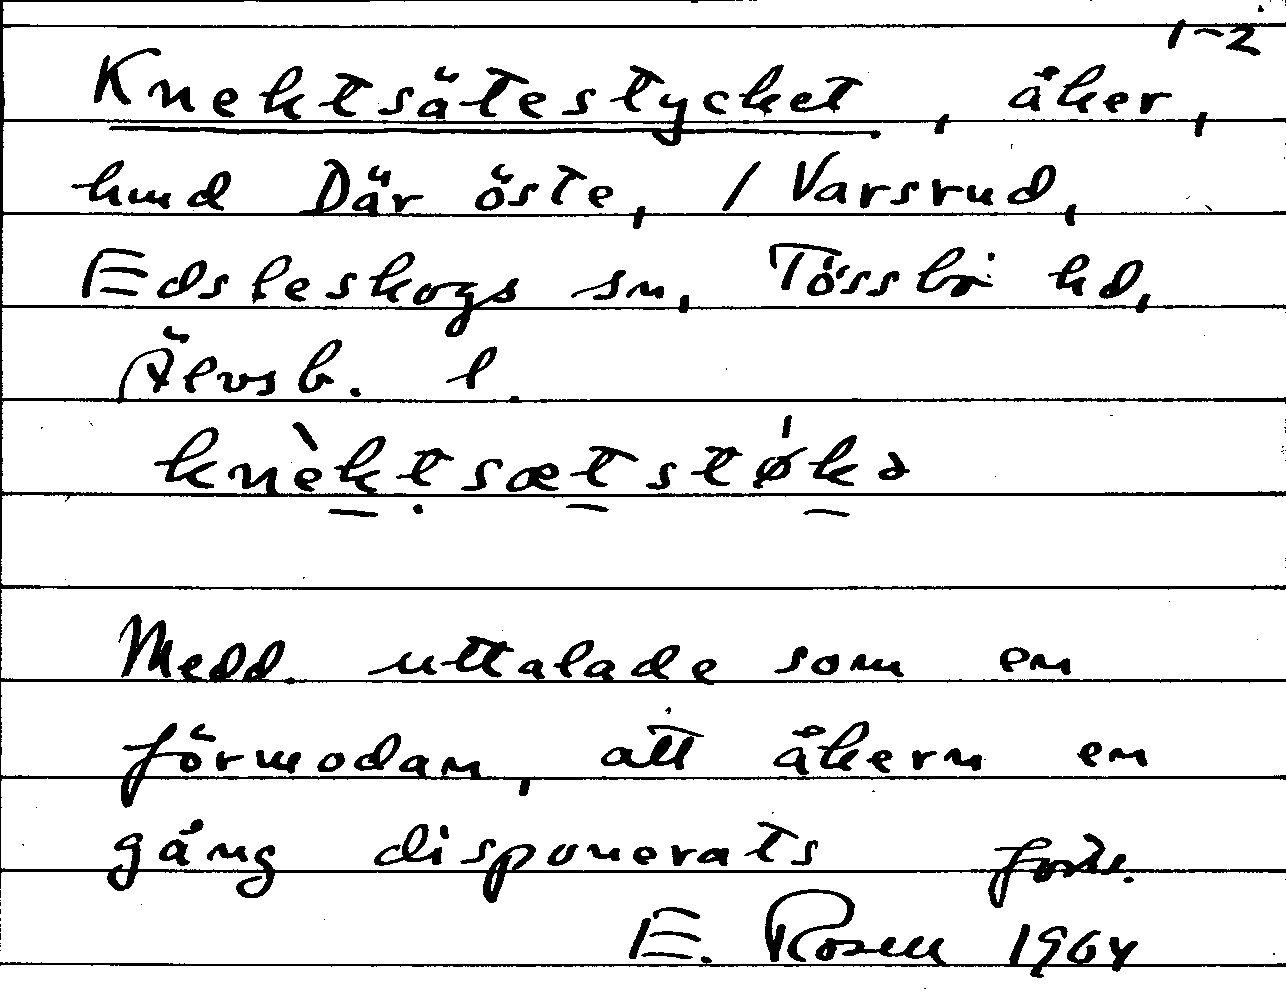 1-2
Knektsätestycket, åker,
hmd Där öste, / Varsrud,
Edsleskogs sn, Tössbo hd,
Älvsb. l.
knèktsætstøkə
Medd. uttalade som en
förmodan, att åkern en
gång disponerats forts.
E. Rosen 1964